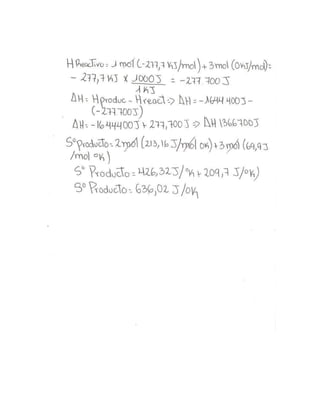 H Reactivo = 1 mol (-277,7 KJ/mol) + 3 mol (0 KJ/mol) =
- 277,7 KJ x 1000 J = -277 700 J
1 KJ
ΔH = Hproduc - Hreact => ΔH = - 1644 400 J -
(-277 700 J)
ΔH = - 1644400 J + 277,700 J => ΔH 1366700 J
S° Producto = 2 mol (213,16 J/mol °K) + 3 mol (69,9 J
/mol °K)
S° Producto = 426,32 J/°K + 209,7 J/°K)
S° Producto = 636,02 J/°K